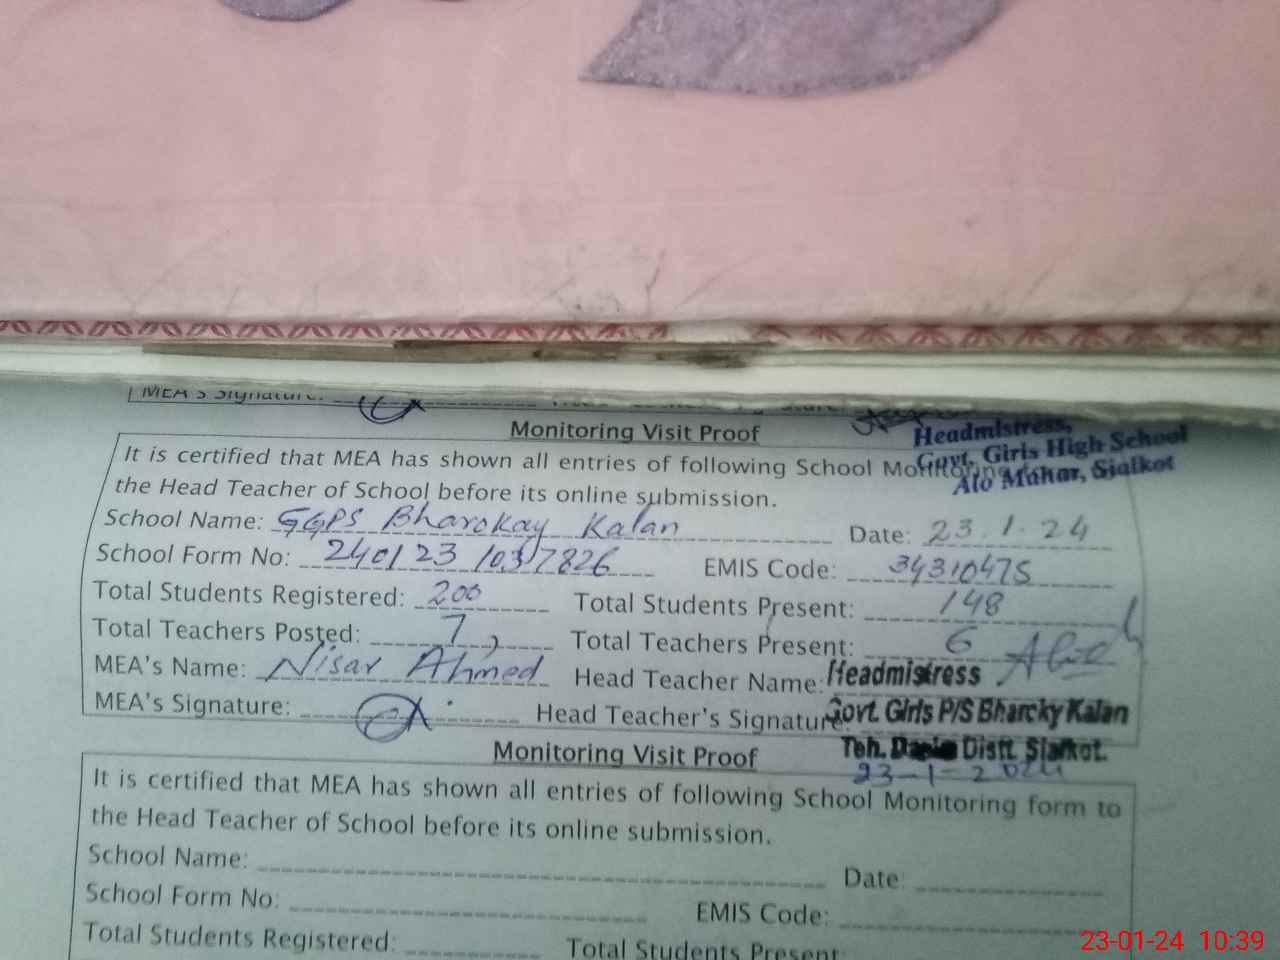 MEA's Signature:
Monitoring Visit Proof
Headmistress,
Govt. Girls High School
Alo Mahar, Sialkot
It is certified that MEA has shown all entries of following School Monitoring
the Head Teacher of School before its online submission.
School Name: GGPS Bharokay Kalan Date: 23.1.24
School Form No: 240123 1037826 EMIS Code: 34310475
Total Students Registered: 200 Total Students Present: 148
Total Teachers Posted: 7 Total Teachers Present: 6
MEA's Name: Nisar Ahmed Head Teacher Name:
Headmistress
MEA's Signature: Head Teacher's Signature
Govt. Girls P/S Bharcky Kalan
Teh. Distt. Sialkot.
23-1-2024
Monitoring Visit Proof
It is certified that MEA has shown all entries of following School Monitoring form to
the Head Teacher of School before its online submission.
School Name: Date:
School Form No: EMIS Code:
Total Students Registered: Total Students Present:
23-01-24 10:39